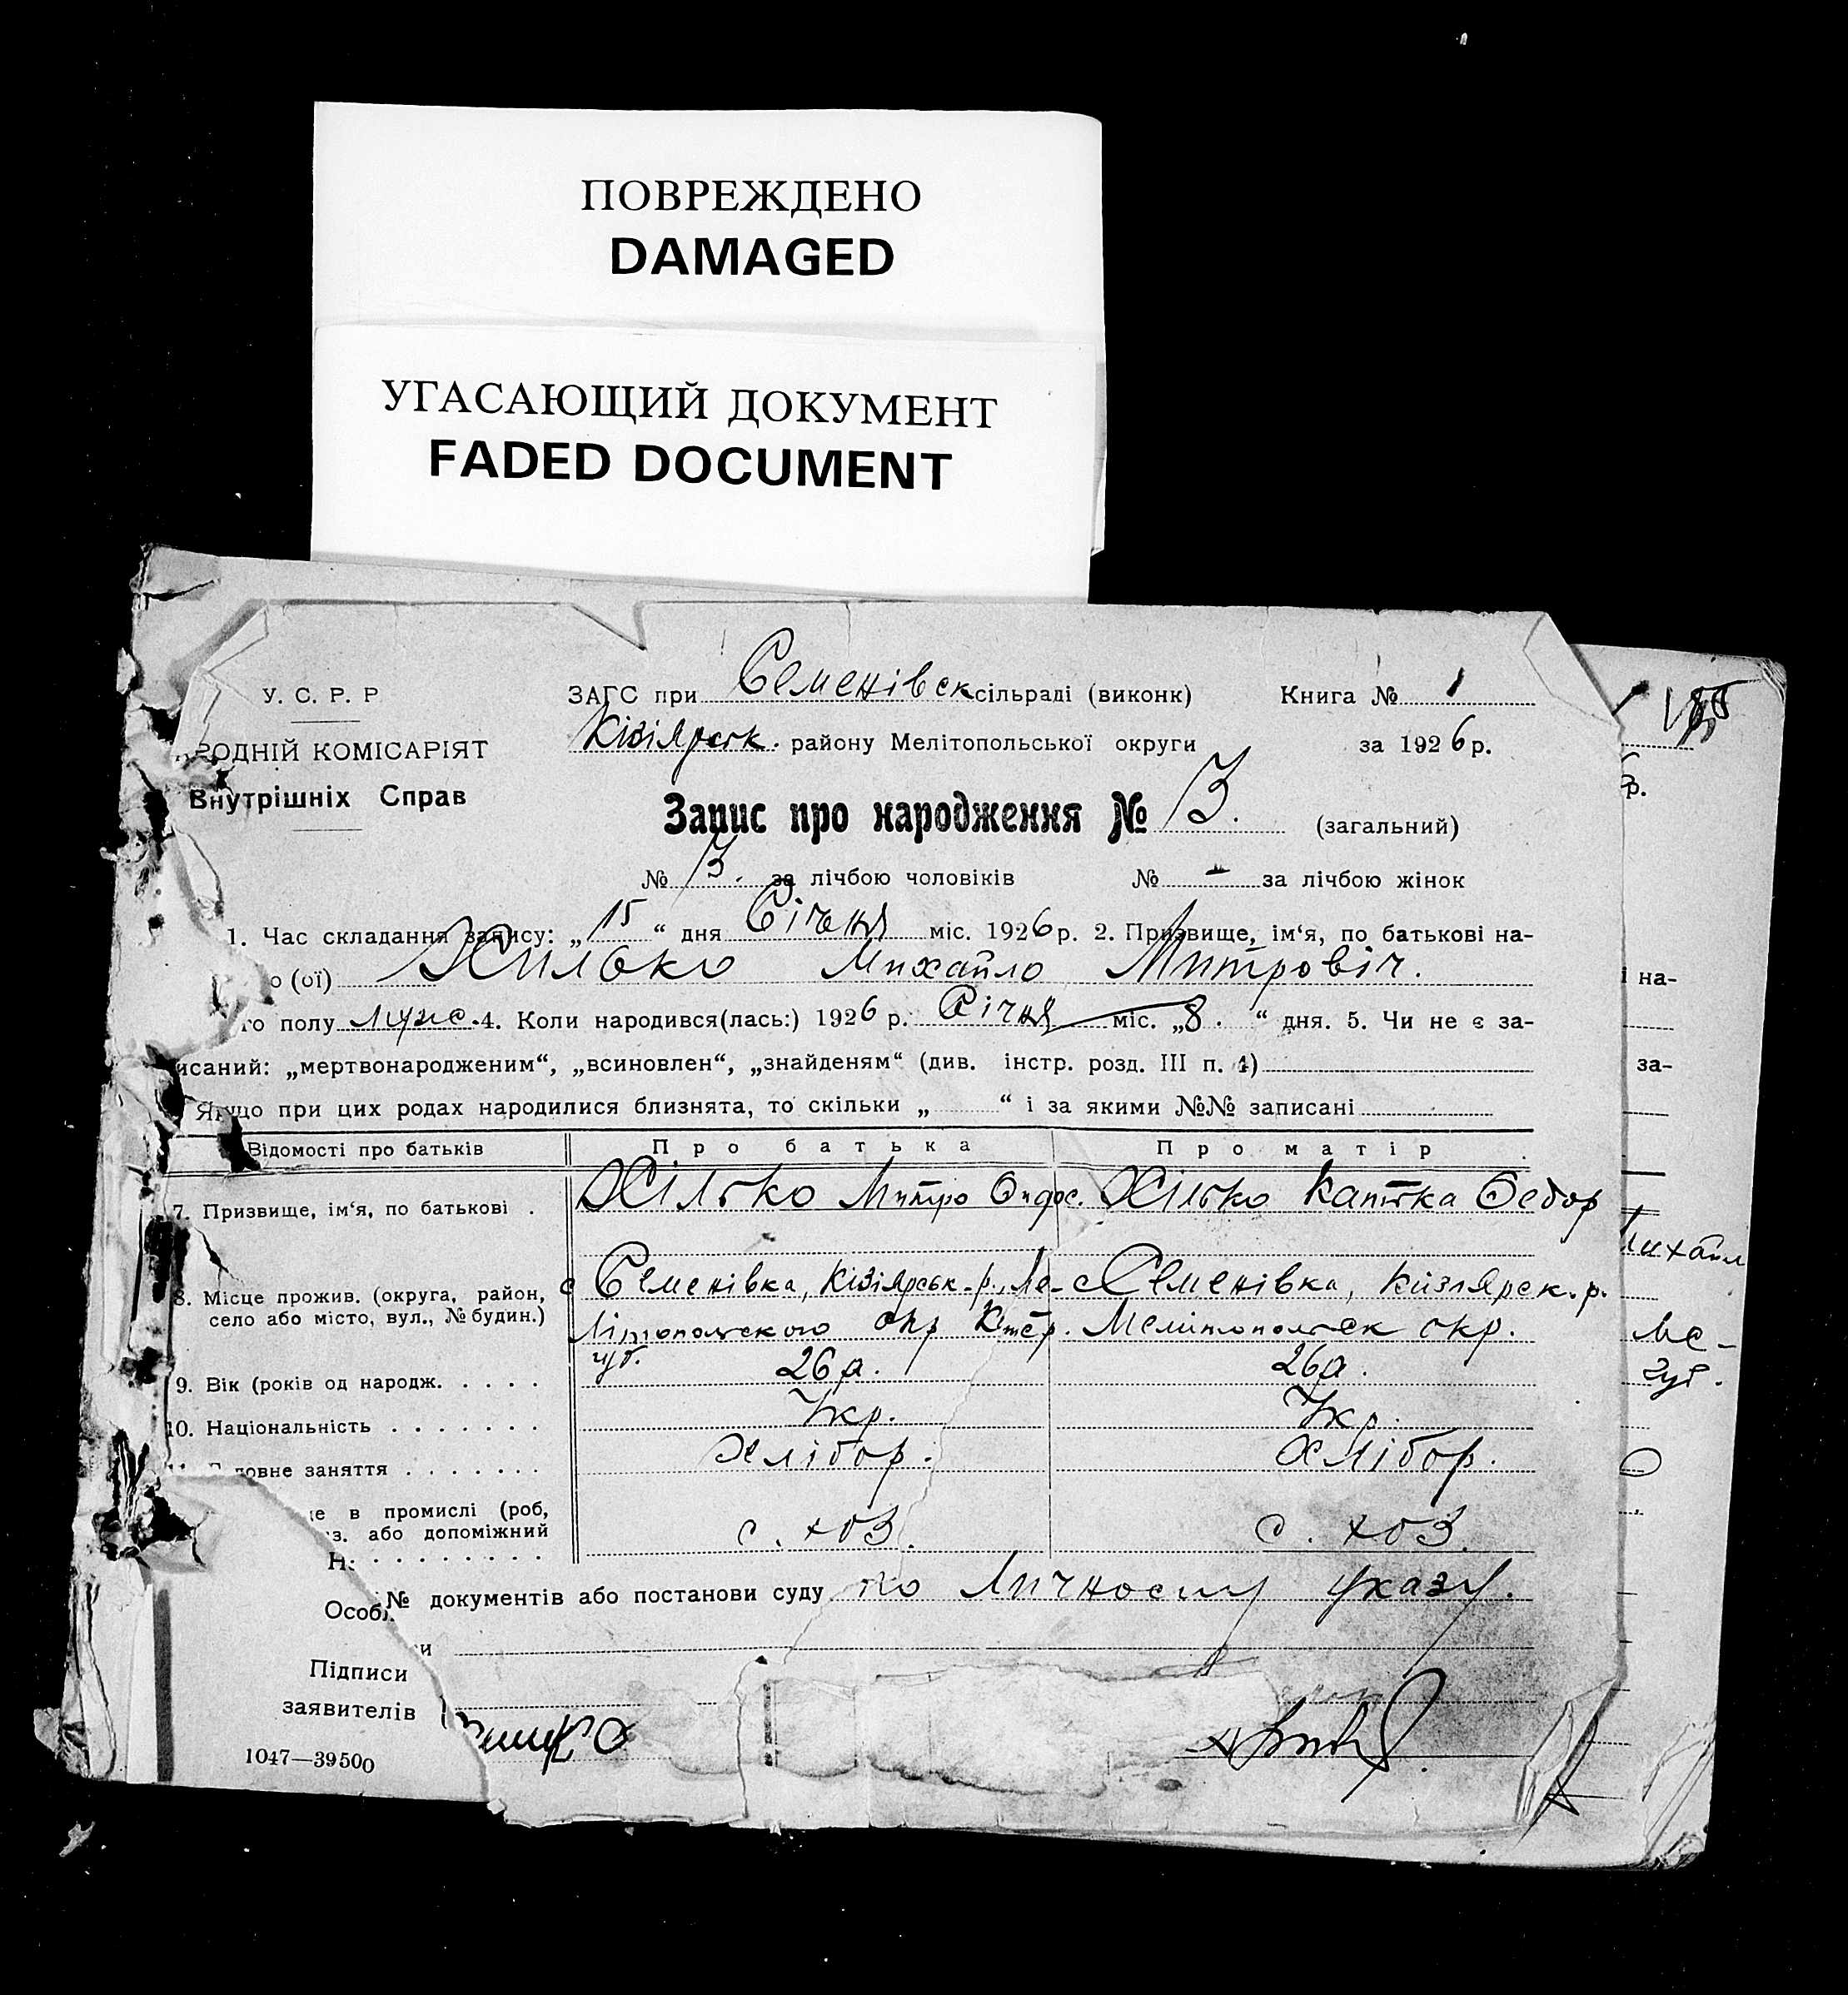 ПОВРЕЖДЕНО
DAMAGED
УГАСАЮЩИЙ ДОКУМЕНТ
FADED DOCUMENT
У. С. Р. Р
ЗАГС при Семенівск сільраді (виконк)
Книга № 1
РОДНІЙ КОМІСАРІЯТ
Кізіярськ. району Мелітопольської округи
за 1926 р.
Внутрішніх Справ
Запис про народження № 3. (загальний)
№ 3. за лічбою чоловіків № - за лічбою жінок
1. Час складання запису: „15“ дня Січня міс. 1926 р. 2. Призвище, ім‘я, по батькові на-
о (ої) Хилько Михайло Митровіч.
го полу муж. 4. Коли народився(лась:) 1926 р. Січня міс. „8. “ дня. 5. Чи не є за-
исаний: „мертвонародженим“, „всиновлен“, „знайденям“ (див. інстр. розд. III п. 4)
Якщо при цих родах народилися близнята, то скільки „ “ і за якими №№ записані
Відомості про батьків
Про батька
Про матір
7. Призвище, ім‘я, по батькові .
Хілько Митро
Хілько Капітка Федор
8. Місце прожив. (округа, район,
село або місто, вул., № будин.)
с Семенівка, Кізіярськ. р., Ме-
літопольского окр Ктер.
губ.
с Семенівка, Кизіярск. р.
Мелітопольск окр.
9. Вік (років од народж. . . . .
26 л.
26 л.
10. Національність . . . . . . .
Укр.
Укр.
овне заняття . . . . . . .
хлібор.
хлібор.
це в промислі (роб,
з. або допоміжний
Н:
с. хоз.
с. хоз.
№ документів або постанови суду по личносму указу.
Особл.
и
Підписи
заявителів
1047—39500
на-
за-
Михайл
Ме-
губ.